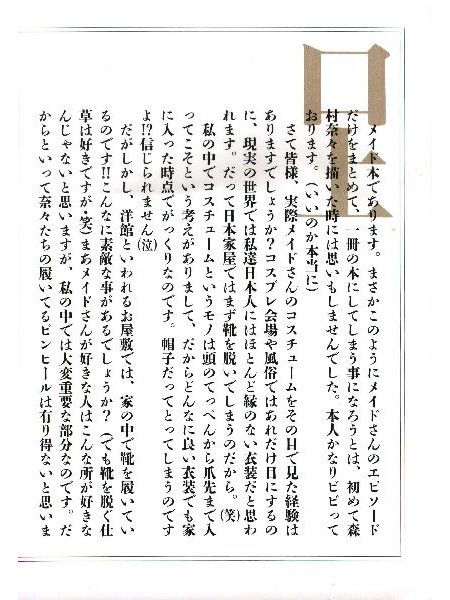 呈
メイド本であります。まさかこのようにメイドさんのエピソード
だけをまとめて、一冊の本にしてしまう事になろうとは、初めて森
村奈々を描いた時には思いもしませんでした。本人かなりビビって
おります。（いいのか本当に）
さて皆様、実際メイドさんのコスチュームをその目で見た経験は
ありますでしょうか？コスプレ会場や風俗ではあれだけ目にするの
に、現実の世界では私達日本人にはほとんど縁のない衣装だと思わ
れます。だって日本家屋ではまず靴を脱いでしまうのだから。(笑)
私の中でコスチュームというモノは頭のてっぺんから爪先まで入
ってこそという考えがありまして、だからどんなに良い衣装でも家
に入った時点でがっくりなのです。帽子だってとってしまうのです
よ!?信じられません(泣)
だがしかし、洋館といわれるお屋敷では、家の中で靴を履いてい
るのです!!こんなに素敵な事があるでしょうか？（でも靴を脱ぐ仕
草は好きですが・笑）まあメイドさんが好きな人はこんな所が好きな
んじゃないと思いますが、私の中では大変重要な部分なのです。だ
からといって奈々たちの履いてるピンヒールは有り得ないと思いま